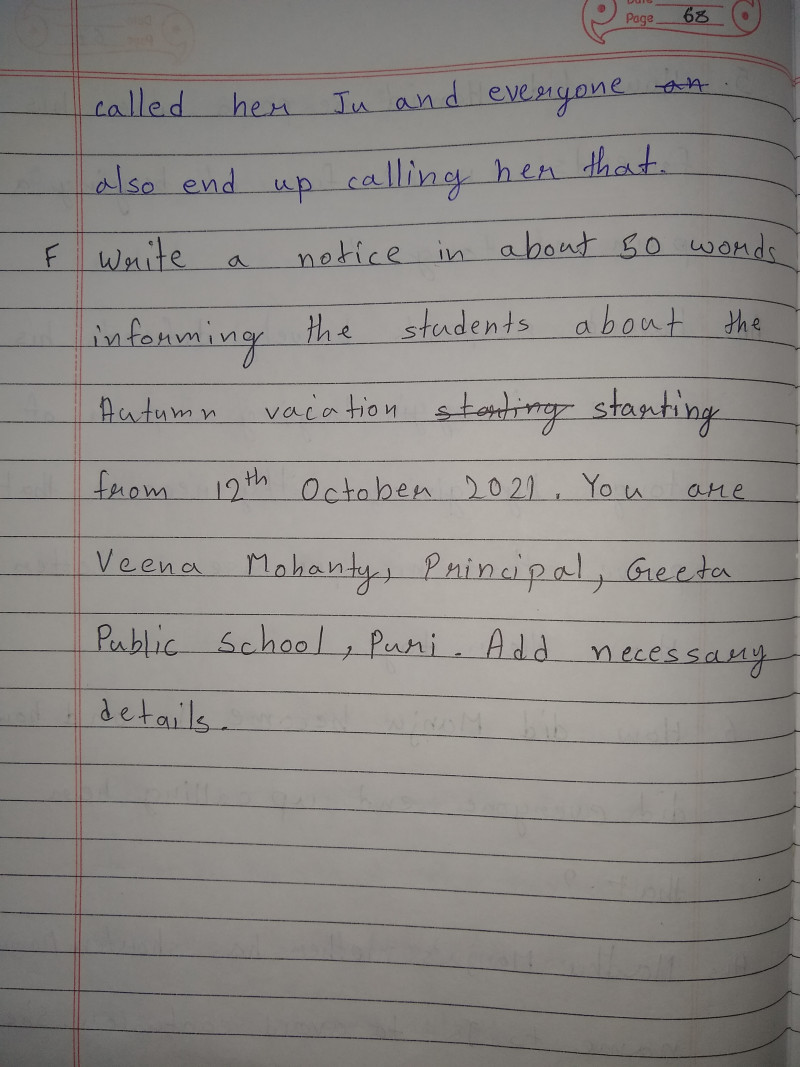 Page 68
called her Ju and everyone an
also end up calling her that.
F Write a notice in about 50 words
informing the students about the
Autumn vacation starting starting
from 12th October 2021. You are
Veena Mohanty, Principal, Geeta
Public School, Puri. Add necessary
details.